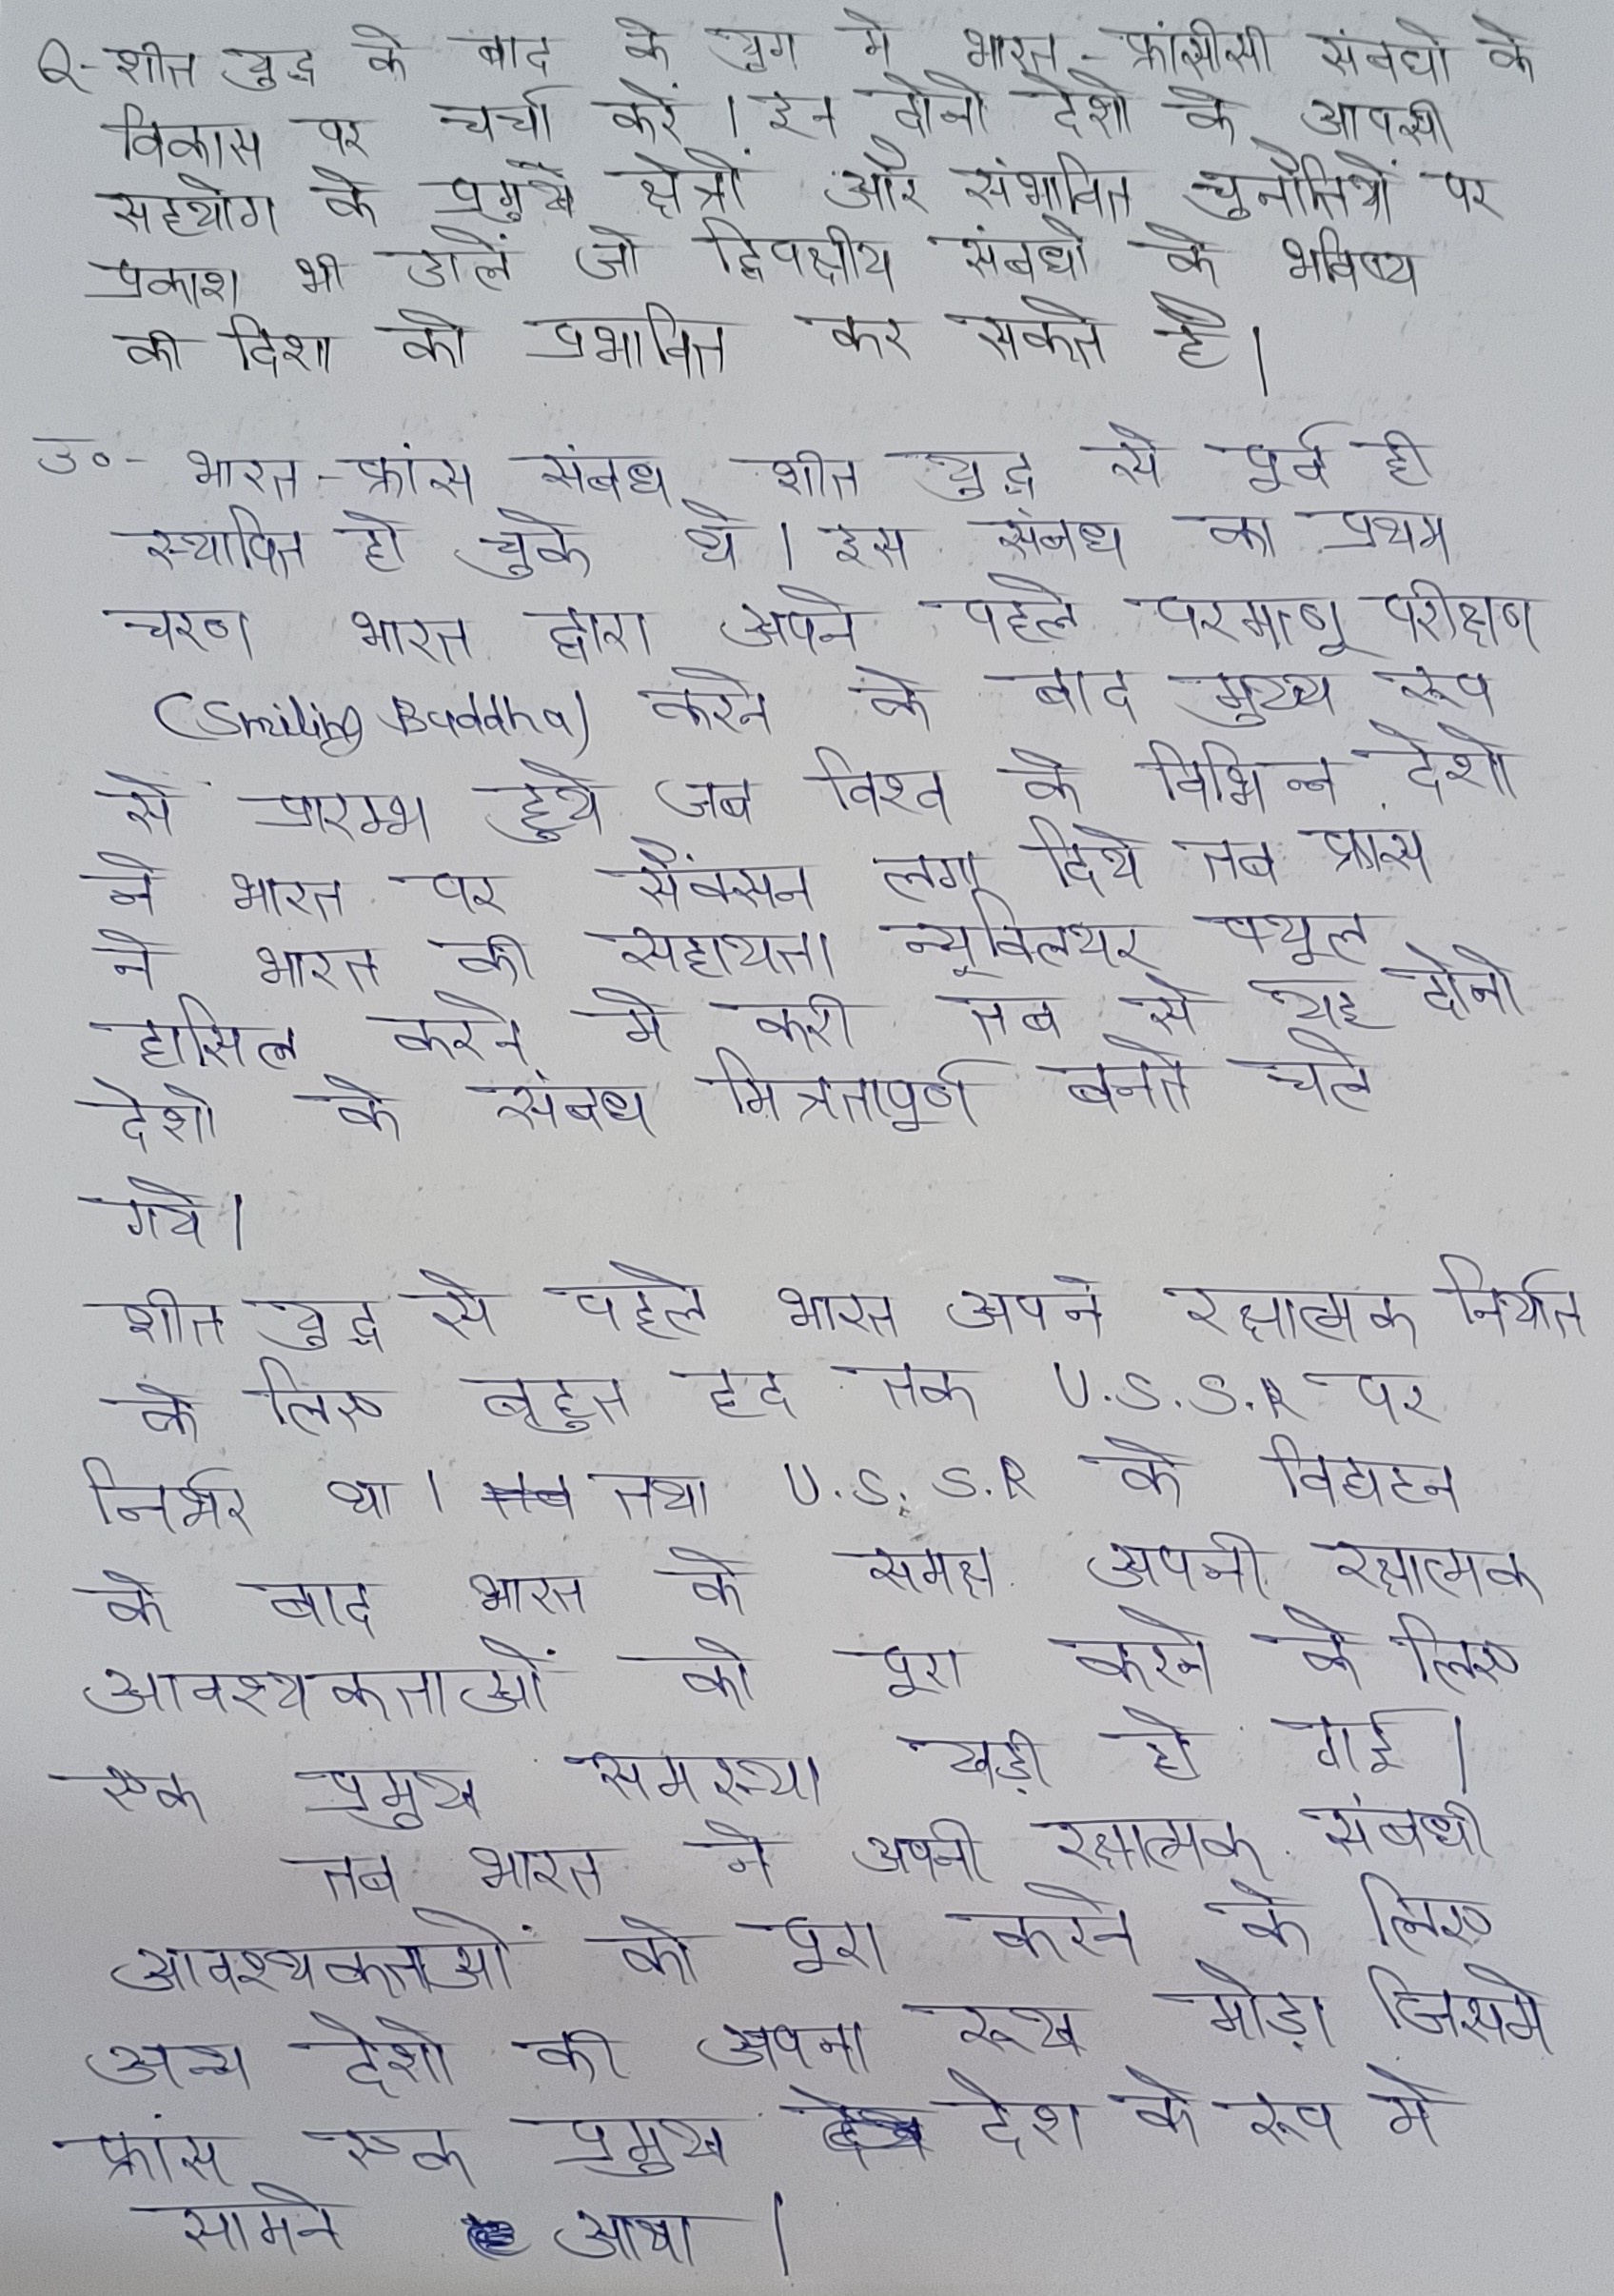 Q- शीत युद्ध के बाद के युग मे भारत - फ्रांसीसी संबधो के
विकास पर चर्चा करें । इन दोनो देशो के आपसी
सहयोग के प्रमुख क्षेत्रों और संभावित चुनौतियों पर
प्रकाश भी डालें जो द्विपक्षीय संबधो के भविष्य
की दिशा को प्रभावित कर सकते है |
उ०- भारत - फ्रांस संबध शीत युद्ध से पूर्व ही
स्थापित हो चुके थे । इस संबध का प्रथम
चरण भारत द्वारा अपने पहले परमाणू परीक्षण
(Smiling Buddha) करने के बाद मुख्य रूप
से प्रारम्भ हुये जब विश्व के विभिन्न देशो
ने भारत पर सैंक्सन लगा दिये तब फ्रांस
ने भारत की सहायता न्यूक्लियर फ्यूल
हासिल करने मे करी तब से यह दोनो
देशो के संबध मित्रतापूर्ण बनते चले
गये |
शीत युद्ध से पहले भारत अपने रक्षात्मक निर्यात
के लिए बहुत हद तक U.S.S.R पर
निर्भर था । तब तथा U.S.S.R के विघटन
के बाद भारत के समक्ष अपनी रक्षात्मक
आवश्यकताओं को पूरा करने के लिए
एक प्रमुख समस्या खड़ी हो गई |
तब भारत ने अपनी रक्षात्मक संबधी
आवश्यकताओं को पूरा करने के लिए
अन्य देशो की अपना रूख मोड़ा जिसमे
फ्रांस एक प्रमुख देश के रूप मे
सामने आया |